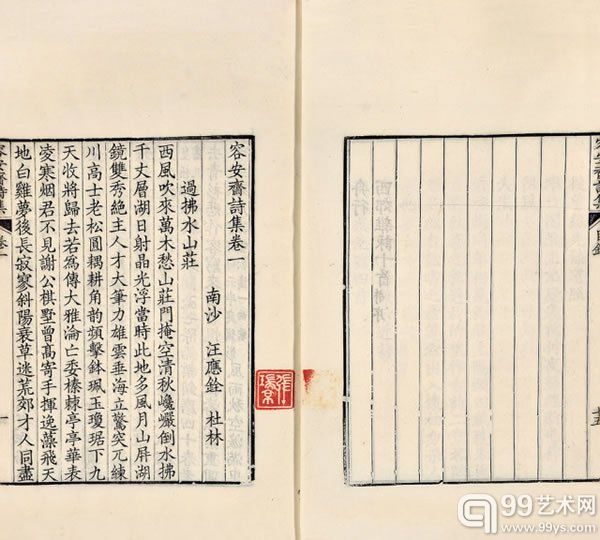 容安齋詩集 目錄
十五
容安齋詩集卷一
南沙 汪應銓 杜林
過拂水山莊
西風吹來萬木愁山莊門掩空清秋巉巖倒水拂
千丈層湖日射晶光浮當時此地多風月山屏湖
鏡雙秀絶主人才大筆力雄雲垂海立驚突兀練
川高士老松圓耦耕角韻頻擊鉢珮玉瓊琚下九
天收將歸去若爲傳大雅淪亡委榛棘亭亭華表
凌寒烟君不見謝公棋墅曾高寄手揮逸藻飛天
地白雞夢後長寂寥斜陽衰草迷荒郊才人同盡
容安齋詩集 卷一
一
99艺术网
www.99ys.com